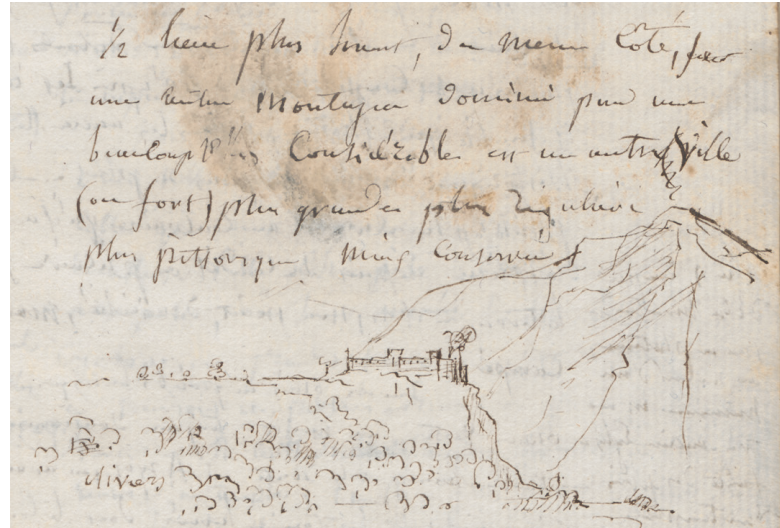 1/2 lieue plus haut, du meme Coté, sur
une autre Montagne dominée par une
beaucoup plus Considérable est un autre Ville
(ou fort) plus grande plus régulière
plus pittoresque mieux conservée
olivers